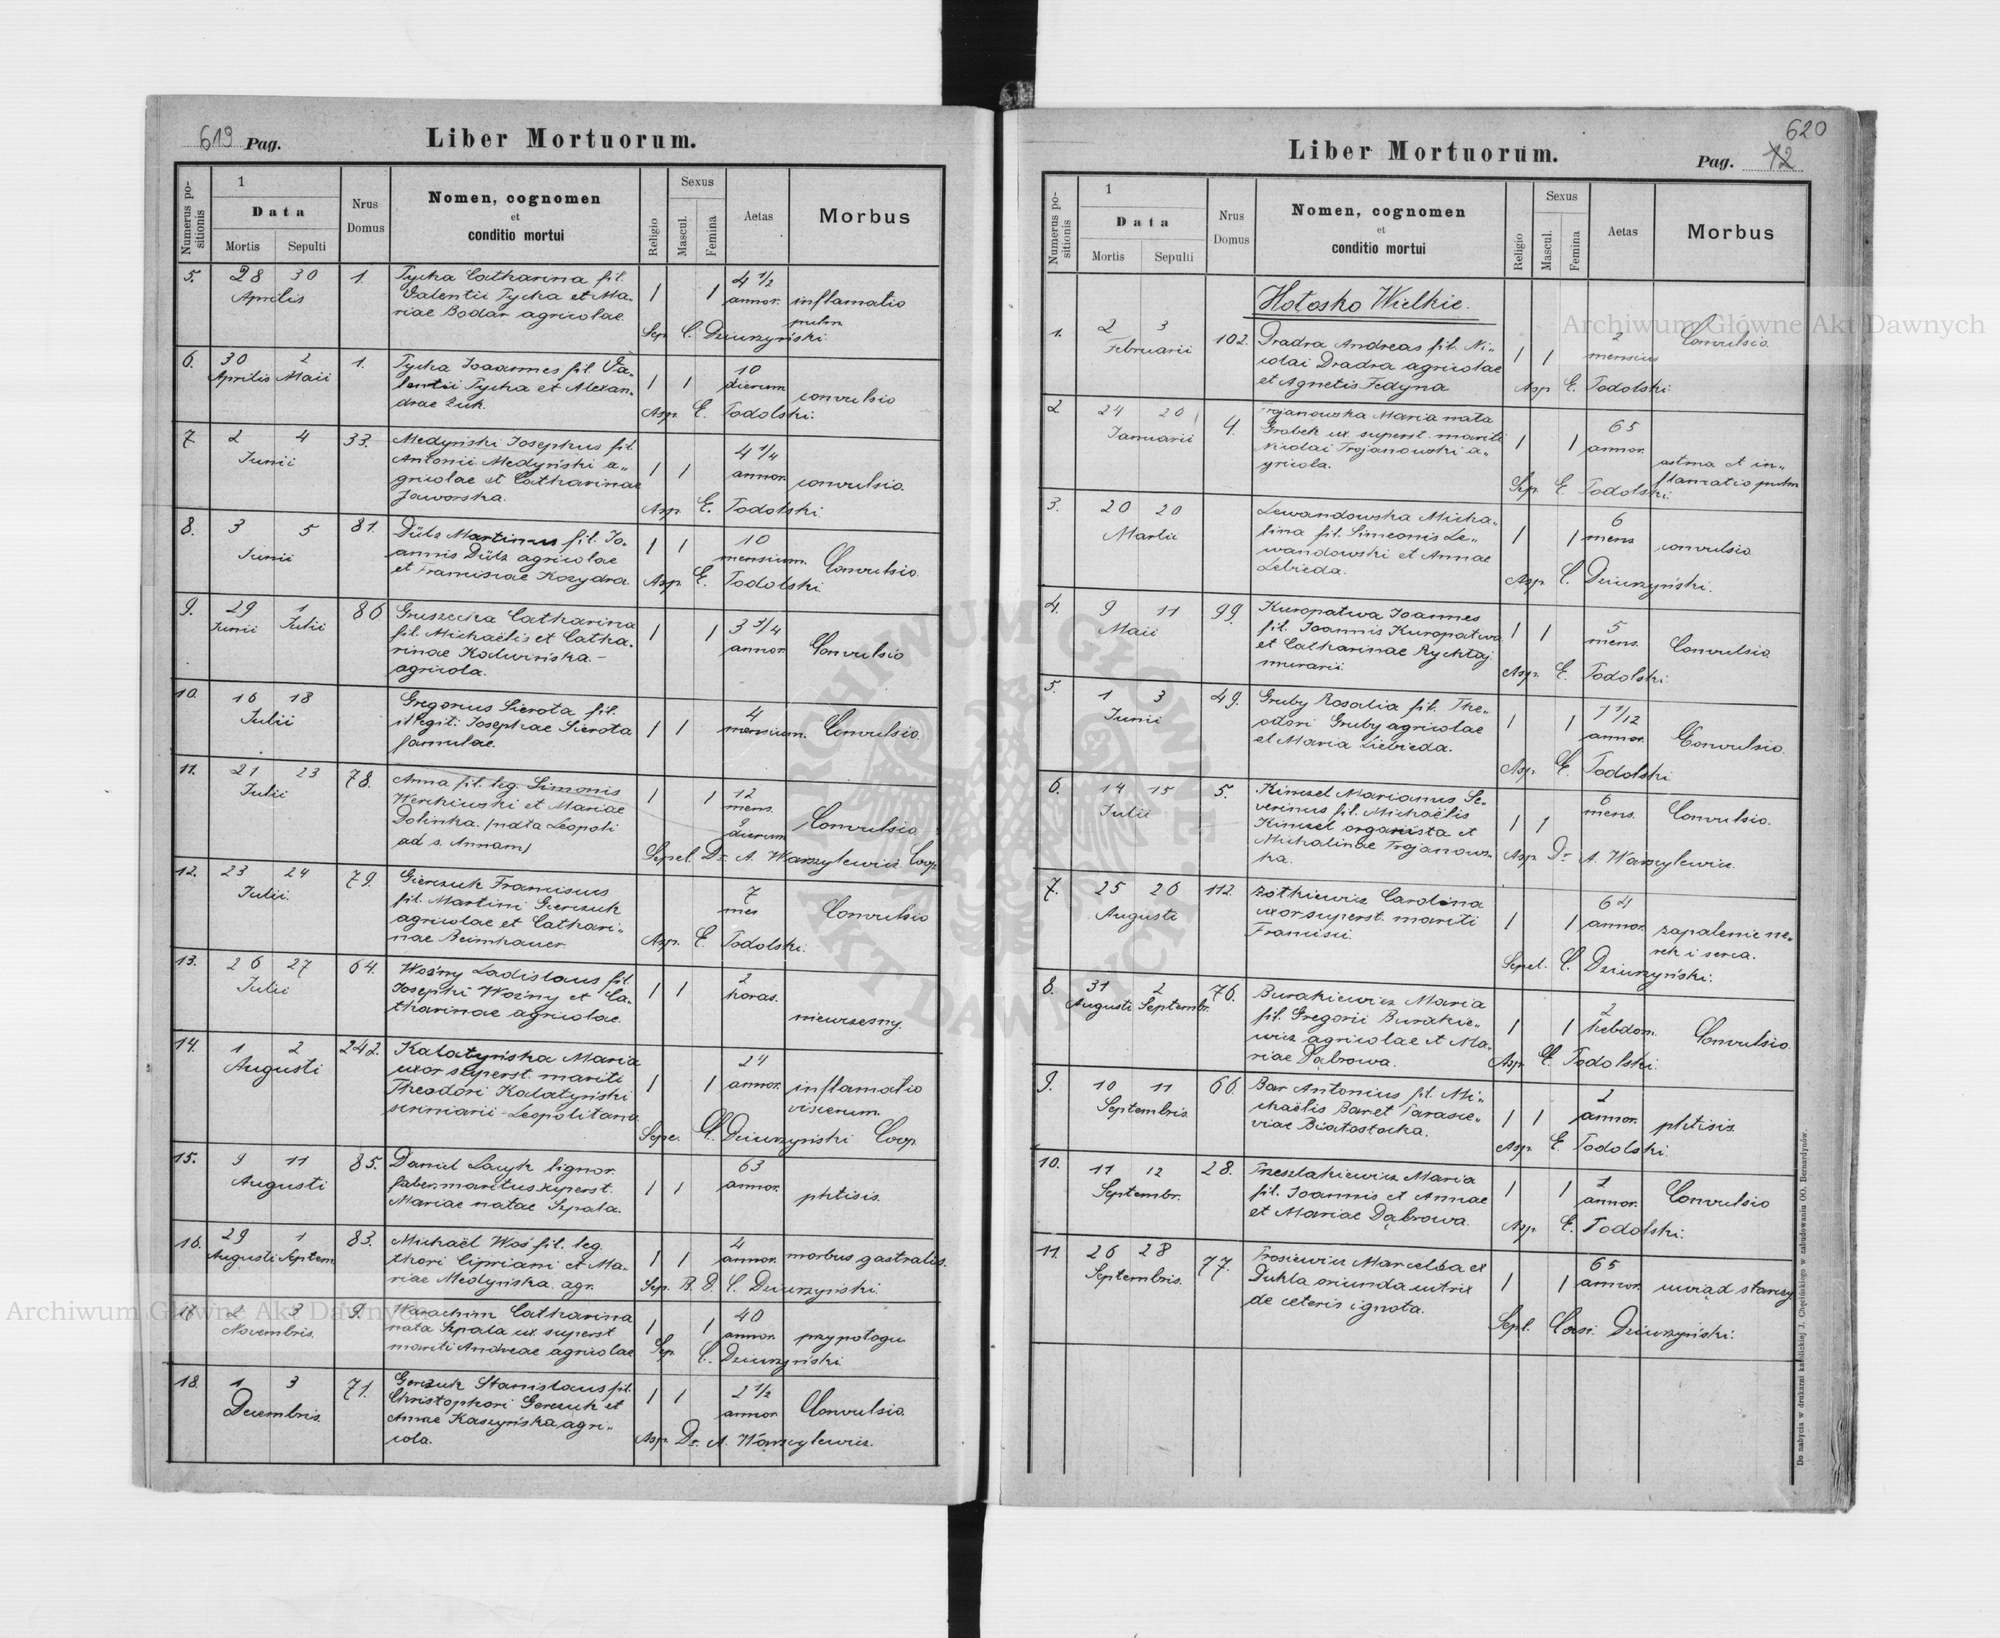 619 Pag.
Liber Mortuorum.
Numerus po-
sitionis
1
Data
Mortis Sepulti
Nrus
Domus
Nomen, cognomen
et
conditio mortui
Religio
Sexus
Mascul.
Femina
Aetas
Morbus
5. 28 30 1. Tycha Catharina fil. 4 1/2
Aprilis Valentii Tycha et Ma- 1 1 annor. inflamatio
riae Bodar agricolae. pulm.
Sep. C. Dziurzyński.
6. 30 2 1. Tycha Joannes fil. Va- 10
Aprilis Maii lentii Tycha et Alexan- 1 1 dierum convulsio
drae Żuk. Asp. E. Podolski.
7. 2 4 33. Medyński Josephus fil. 4 1/4
Junii Antonii Medyński a- 1 1 annor. convulsio.
gricolae et Catharinae
Jaworska. Asp. E. Podolski.
8. 3 5 81. Martinus fil. Jo- 1 1 10
Junii annis agricolae mensium. Convulsio.
et Franciscae Kozydra. Asp. E. Podolski.
9. 29 1 86 Gruszecka Catharina
Junii Julii fil. Michaëlis et Catha- 1 1 3 3/4
rinae Kalwińska.- annor. Convulsio
agricola.
10. 16 18 Gregorius Sierota fil.
Julii illegit. Josephae Sierota 1 1 4 mensium. Convulsio.
famulae.
11. 21 23 78. Anna fil. leg. Simonis 1 1 12
Julii et Mariae mens.
Dolinka. (nata Leopoli 9 dierum Convulsio.
ad s. Annam)
Sepel. Dr. A. Warszylewicz Coop.
12. 23 24 79. Gierczuk Franciscus 7
Julii. fil. Martini Gierczuk mes Convulsio
agricolae et Cathari-
nae Beimhauer Asp. E. Podolski.
13. 26 27 64. Woźny Ladislaus fil. 2
Julii Josephi Woźny et Ca- 1 1 horas.
tharinae agricolae. niewczesny.
14. 1 2 242. Kalatyńska Maria 24
Augusti uxor superst. mariti 1 1 annor. inflamatio
Theodori Kalatyński viscerum.
scriniarii - Leopolitana
Sepe. C. Dziurzyński Coop.
15. 9 11 85. Daniel Lacyk lignor. 63
Augusti faber, maritus superst. 1 1 annor.
Mariae natae Szpala. phtisis.
16. 29 1 83. Michaël Woś fil. leg. 4
Augusti Septem. thori Cipriani et Ma- 1 1 annor. morbus gastralis.
riae Medyńska agr. Sep. R. D. C. Dziurzyński.
17. 2 3 9. Warachim Catharina 40
Novembris. nata Szpala ux. superst. 1 1 annor.
mariti Andreae agricolae Sep. C. Dziurzyński
18. 1 3 71. Gerczuk Stanislaus fil. 2 1/2
Decembris. Christophori Gerczuk et 1 1 annor. Convulsio.
Annae Kaszyńska agri-
cola. Asp. Dr. A. Warszylewicz.
620
Liber Mortuorum.
Pag. 12
Numerus po-
sitionis
1
Data
Mortis Sepulti
Nrus
Domus
Nomen, cognomen
et
conditio mortui
Religio
Sexus
Mascul.
Femina
Aetas
Morbus
Hołosko Wielkie.
1. 2 3 102. Dradra Andreas fil. Ni- 2 Convulsio.
Februarii colai Dradra agricolae 1 1 mensium
et Agnetis Fedyna Asp. E. Podolski.
2 24 26 4. Trojanowska Maria nata 65
Januarii Grabek ux. superst. mariti 1 1 annor.
Nicolai Trojanowski a- astma et in-
gricola. Sep. E. Podolski. flamatio pulm
3. 20 20 Lewandowska Micha- 6
Martii lina fil. Simeonis Le- 1 1 mens convulsio
wandowski et Annae
Lebieda. Asp. C. Dziurzyński.
4. 9 11 99. Kuropatwa Joannes 5
Maii fil. Joannis Kuropatwa 1 1 mens. Convulsio.
et Catharinae Rychtaj
murarii. Asp. E. Podolski.
5. 1 3 49. Gruby Rosalia fil. The- 1 1/12
Junii odori Gruby agricolae 1 1 annor. Convulsio.
et Maria Liebieda.
Asp. E. Podolski
6. 14 15 5. Kinczel Marianus Se- 6
Julii verinus fil. Michaëlis mens. Convulsio.
Kinczel organista et 1 1
Michalinae Trojanows-
ka. Asp. Dr. A. Warszylewicz.
7. 25 26 112. Żółkiewicz Carolina 64
Augusti uxor superst. mariti 1 1 annor. zapalenie ne-
Francisci. rek i serca.
Sepel. C. Dziurzyński.
8. 31 2 76. Burakiewicz Maria 2
Augusti Septembr. fil. Gregorii Burakie- 1 1 hebdom. Convulsio.
wicz agricolae et Ma-
riae Dąbrowa. Asp. E. Podolski.
9. 10 11 66. Bar Antonius fil. Mi- 2
Septembris. chaëlis Bar et Parasce- 1 1 annor. phtisis.
viae Białostocka. Asp. E. Podolski.
10. 11 12 28. Trzeszlakiewicz Maria 1
Septembr. fil. Joannis et Annae 1 1 annor. Convulsio
et Mariae Dąbrowa. Asp. E. Podolski.
11. 26 28 77. Marcella ex 65
Septembris. Dukla oriunda nutrix 1 1 annor. uwiąd starczy
de ceteris ignota.
Sepl. Casi. Dziurzyński.
Do nabycia w drukarni katolickiej J. Chęcińskiego w zabudowaniu OO. Bernardynów.
Archiwum Główne Akt Dawnych
Archiwum Główne Akt Dawnych
ARCHIWUM GŁÓWNE AKT DAWNYCH